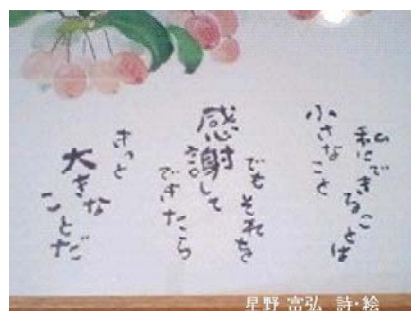 私にできることは
小さなこと
でもそれを
感謝して
できたら
きっと
大きな
ことだ
星野 富弘 詩・絵